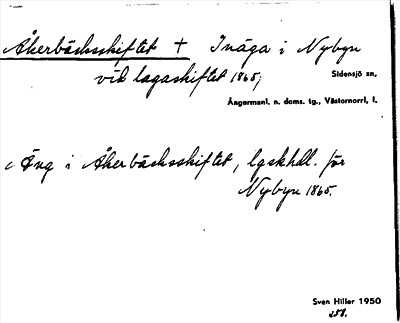 Åkerbäcksskiftet † Inäga i Nybyn
vid lagaskiftet 1865;
Sidensjö sn,
Ångermanl. n. doms. tg., Västernorrl. l.
c Äng i Åkerbäcksskiftet, lgskhdl. för
Nybyn 1865.
Sven Hiller 1950
258.